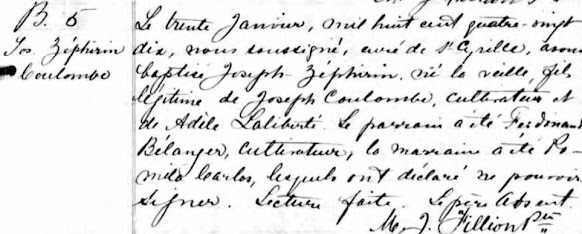 B. 5
Jos. Zéphirin
Coulombe
Le trente Janvier, mil huit cent quatre-vingt
dix, nous soussigné, curé de St Cyrille, avons
baptisé Joseph-Zéphirin, né la veille, fils
légitime de Joseph Coulombe, cultivateur et
de Adèle Laliberté. Le parrain a été Ferdinand
Bélanger, cultivateur, la marraine a été Ro-
mila Carlos, lesquels ont déclaré ne pouvoir
signer. Lecture faite. Le père absent.
M. J. Fillion Ptre